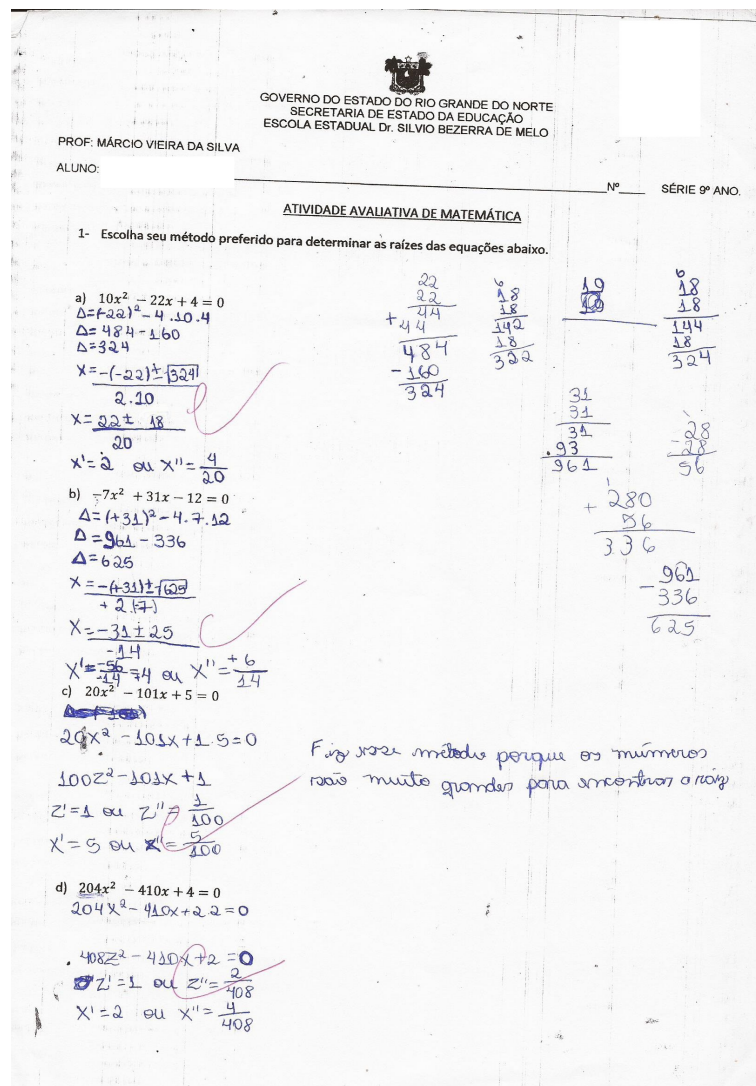 GOVERNO DO ESTADO DO RIO GRANDE DO NORTE
SECRETARIA DE ESTADO DA EDUCAÇÃO
ESCOLA ESTADUAL Dr. SILVIO BEZERRA DE MELO
PROF: MÁRCIO VIEIRA DA SILVA
ALUNO: Nº____ SÉRIE 9º ANO.
ATIVIDADE AVALIATIVA DE MATEMÁTICA
1- Escolha seu método preferido para determinar as raízes das equações abaixo.
a) 10x² − 22x + 4 = 0
Δ=(-22)² - 4.10.4
Δ= 484 - 160
Δ=324
X= -(-22) ± √324
2.10
X= 22 ± 18
20
X'= 2 ou X''= 4/20
b) −7x² + 31x − 12 = 0
Δ=(+31)² - 4.7.12
Δ = 961 - 336
Δ=625
X= -(+31) ± √625
+2.(-7)
X= -31 ± 25
-14
X'= -56/-14 = 4 ou X''= +6/14
c) 20x² − 101x + 5 = 0
20X² - 101X + 1.5=0
100Z² - 101X + 1
Z'=1 ou Z''= 1/100
X'= 5 ou X''= 5/100
d) 204x² − 410x + 4 = 0
204X² - 410X + 2.2=0
408Z² - 410X + 2 = 0
Z'=1 ou Z''= 2/408
X'=2 ou X''= 4/408
22
22
44
+44
484
-160
324
18
18
142
18
322
19
6
18
18
144
18
324
31
31
31
.93
961
28
-28
56
1
+ 280
56
336
961
-336
625
Fiz esse método porque os números
são muito grandes para encontrar a raiz